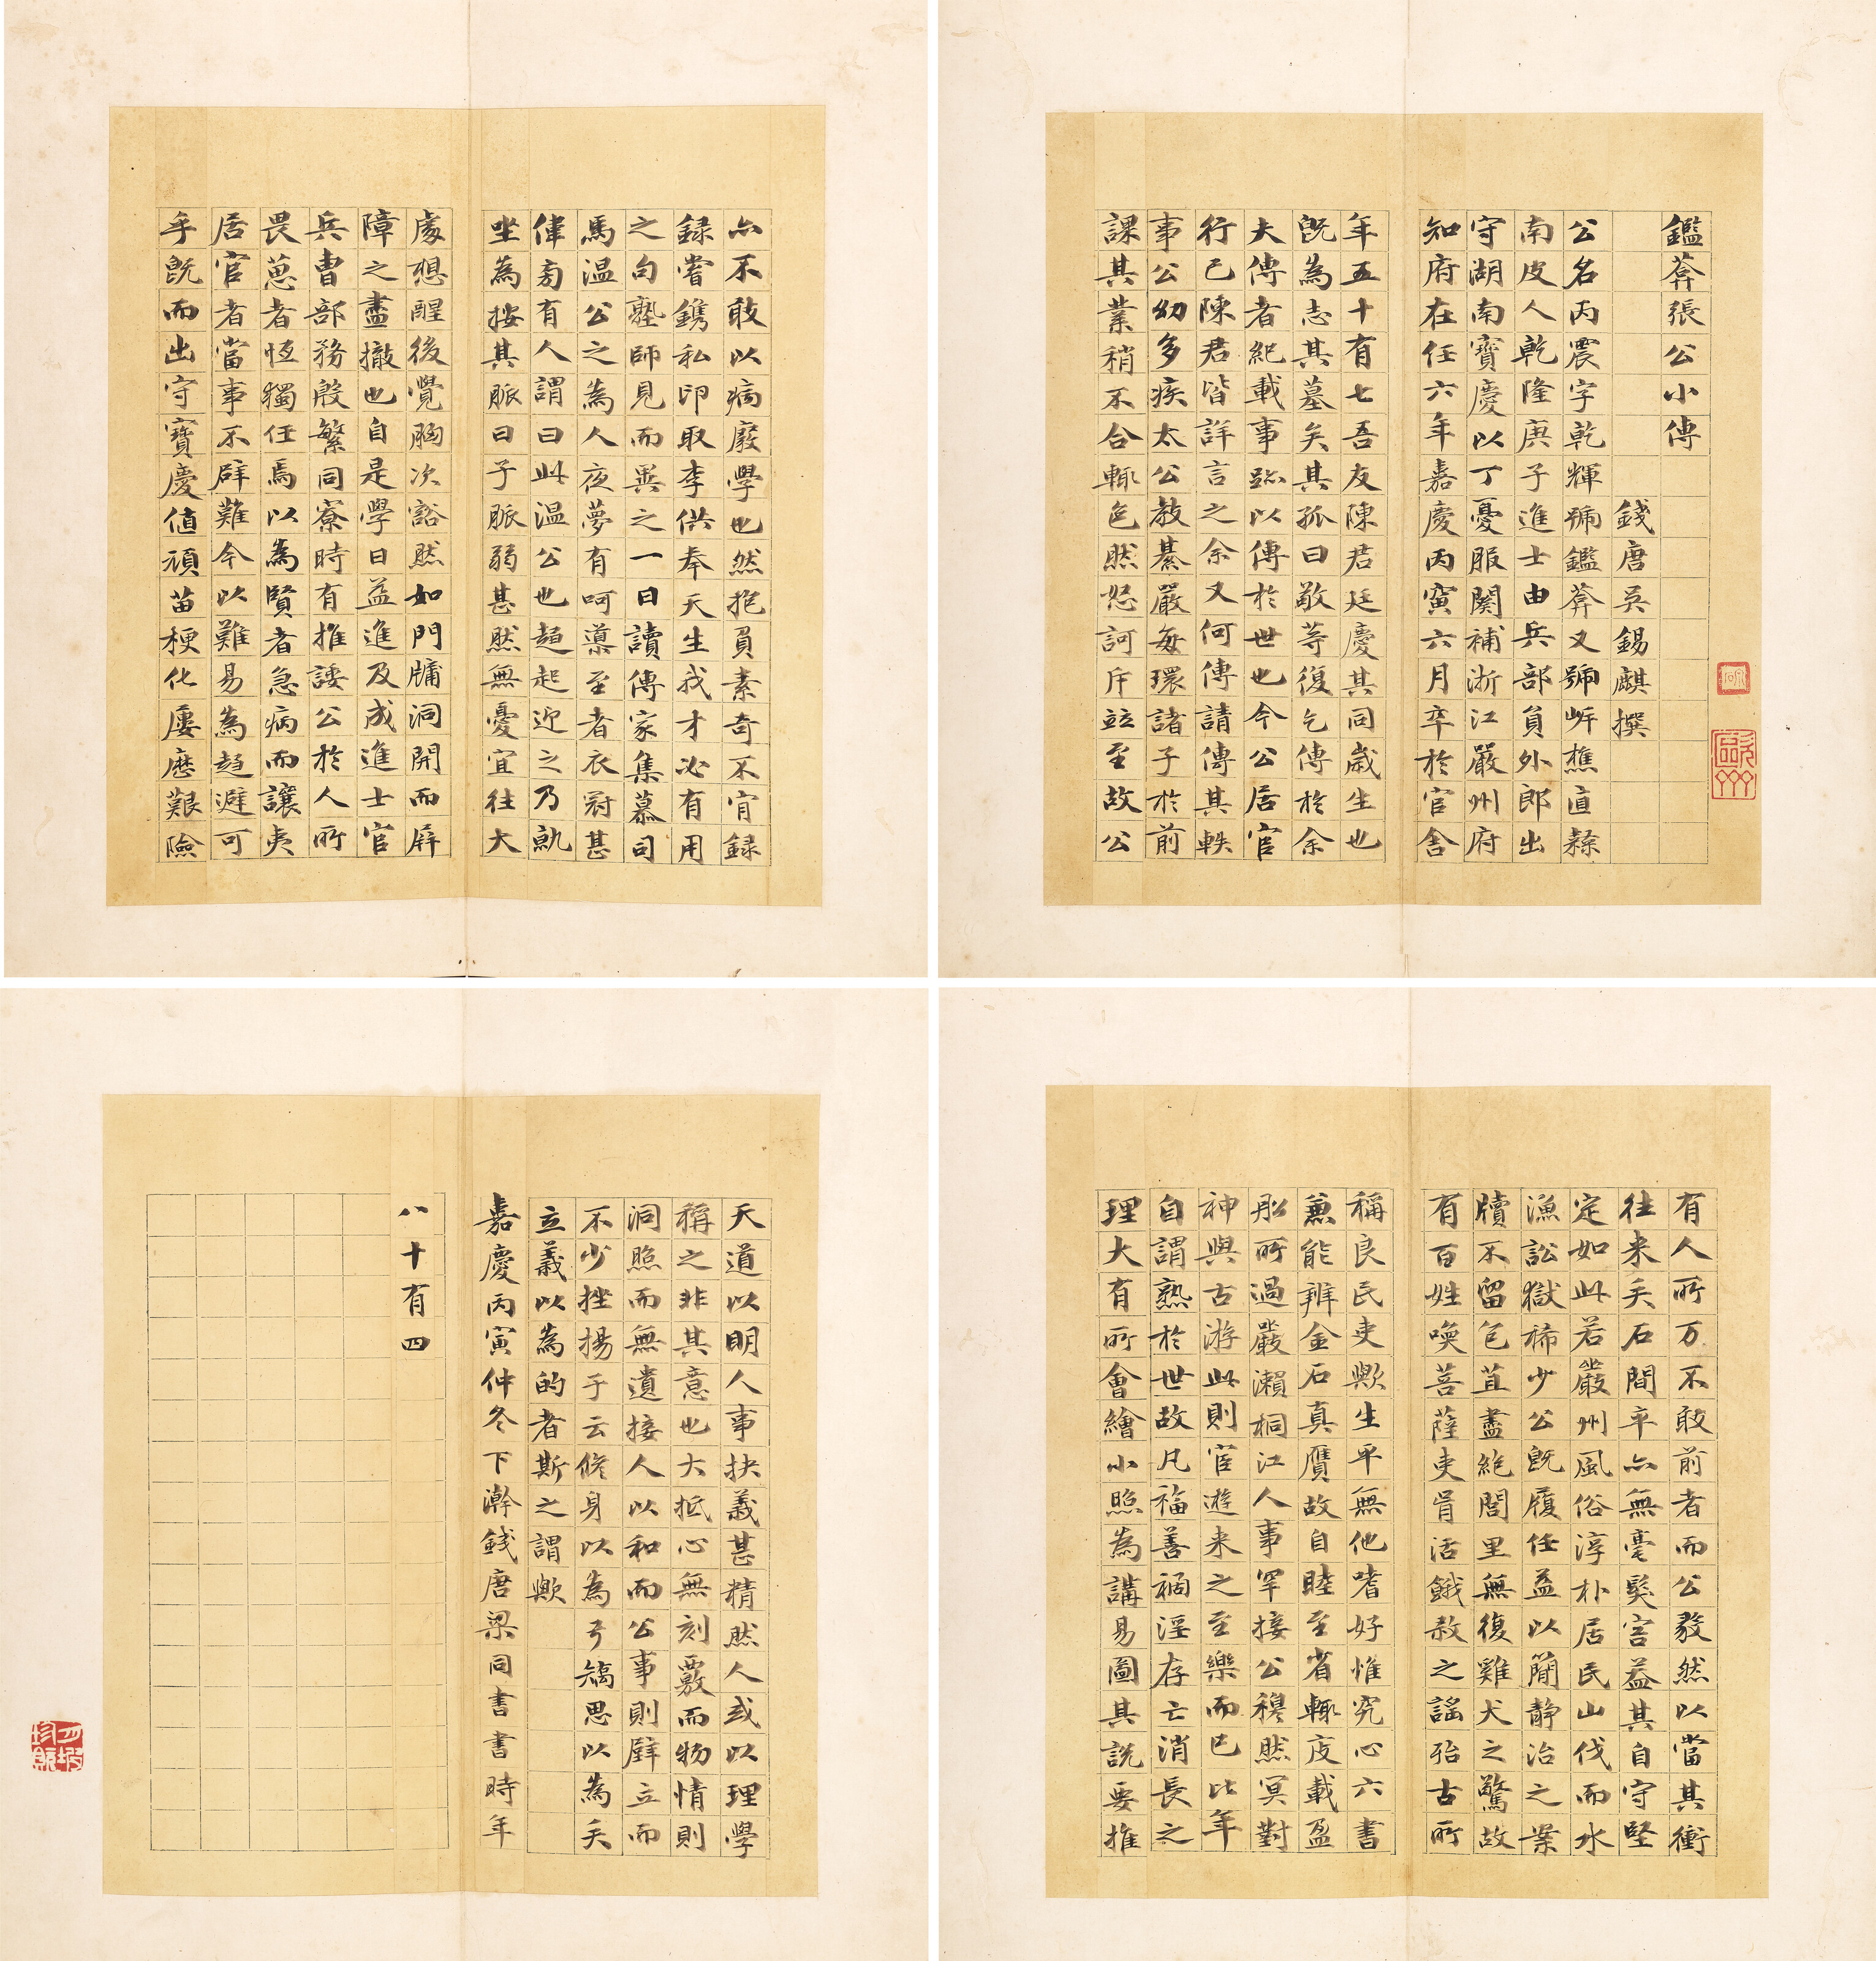 鑑菴張公小傳
錢唐吳錫麒撰
公名丙震字乾輝號鑑菴又號岞樵直隸
南皮人乾隆庚子進士由兵部員外郎出
守湖南寶慶以丁憂服闋補浙江嚴州府
知府在任六年嘉慶丙寅六月卒於官舍
年五十有七吾友陳君廷慶其同歲生也
既為志其墓矣其孤曰敬等復乞傳於余
夫傳者紀載事跡以傳於世也今公居官
行己陳君皆詳言之余又何傳請傳其軼
事公幼多疾太公教綦嚴每環諸子於前
課其業稍不合輒色然怒訶斥竝至故公
亦不敢以病廢學也然抱負素奇不肎錄
錄嘗鐫私印取李供奉天生我才必有用
之句塾師見而異之一日讀傳家集慕司
馬溫公之為人夜夢有呵導至者衣冠甚
偉旁有人謂曰此溫公也趨起迎之乃就
坐為按其脈曰子脈弱甚然無憂宜往大
處想醒後覺胸次豁然如門牖洞開而屏
障之盡撤也自是學日益進及成進士官
兵曹部務殷繁同寮時有推諉公於人所
畏葸者恆獨任焉以為賢者急病而讓夷
居官者當事不辟難今以難易為趨避可
乎既而出守寶慶值頑苗梗化屢歷艱險
有人所万不敢前者而公毅然以當其衝
往來矢石間卒亦無毫髮害益其自守堅
定如此若嚴州風俗淳朴居民山伐而水
漁訟獄稀少公既履任益以簡靜治之案
牘不留包苴盡絕閭里無復雞犬之驚故
有百姓喚菩薩吏胥活餓殺之謠殆古所
稱良民吏歟生平無他嗜好惟究心六書
兼能辨金石真贋故自睦至省輒庋載盈
舩所過嚴瀨桐江人事罕接公穆然冥對
神與古游此則宦遊來之至樂而已比年
自謂熟於世故凡福善禍淫存亡消長之
理大有所會繪小照為講易圖其說要推
天道以明人事抉義甚精然人或以理學
稱之非其意也大抵心無刻覈而物情則
洞照而無遺接人以和而公事則壁立而
不少挫揚子云修身以為弓矯思以為矢
立義以為的者斯之謂歟
嘉慶丙寅仲冬下澣錢唐梁同書書時年
八十有四